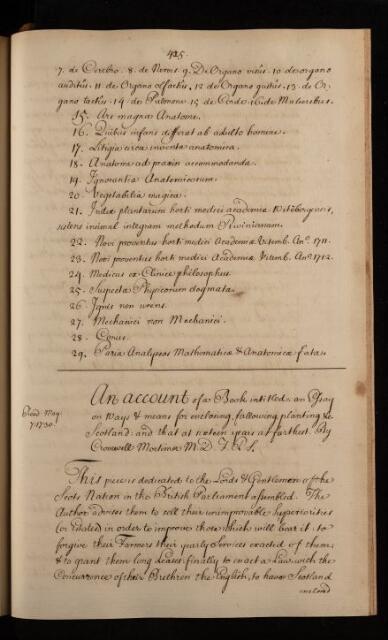 425.
7. de Cerebro. 8. de Nervis. 9. De Organo visûs. 10 de organo
auditûs. 11. de Organo olfactûs. 12. de Organo gustûs. 13. de Or-
gano tactûs. 14. de Pulmone. 15 de Corde. 16. de Muliebribus.
15. Ars magna Anatome.
16. Quibus infans differat ab adulto homine.
17. Litigia circa inventa anatomica.
18. Anatome ad praxin accommodanda.
19. Ignorantia Anatomicorum.
20. Vegetabilia magica.
21. Index plantarum horti medici academiæ Witebergensis,
sistens integram methodum Rivinianam.
22. Novi proventus horti medici Academiæ Vitemb. Anº. 1711.
23. Novi proventus horti medici Academiæ Vitemb. Anº. 1712.
24. Medicus ex Clinice philosophus.
25. Suspecta Physicorum dogmata.
26. Ignis non urens.
27. Mechanici non Mechanici.
28. Conus.
29. Varia Analyseos Mathematicæ & Anatomicæ fata.
Read May
7. 1730.
An account of a Book intitled, an Essay
on Ways & means for enclosing, fallowing, planting &c
Scotland: and that at sixteen years at farthest. By
Cromwell Mortimer M.D. F.R.S.
This piece is dedicated to the Lords & Gentlemen of the
Scots Nation in the British Parliament assembled. The
Author advises them to sell their unimprovable Superiorities
(or Estates) in order to improve those which will bear it: to
forgive their Farmers their yearly Services exacted of them,
& to grant them long Leases: finally to enact a Law, with the
Concurrence of their Brethren the English, to have Scotland
enclosed